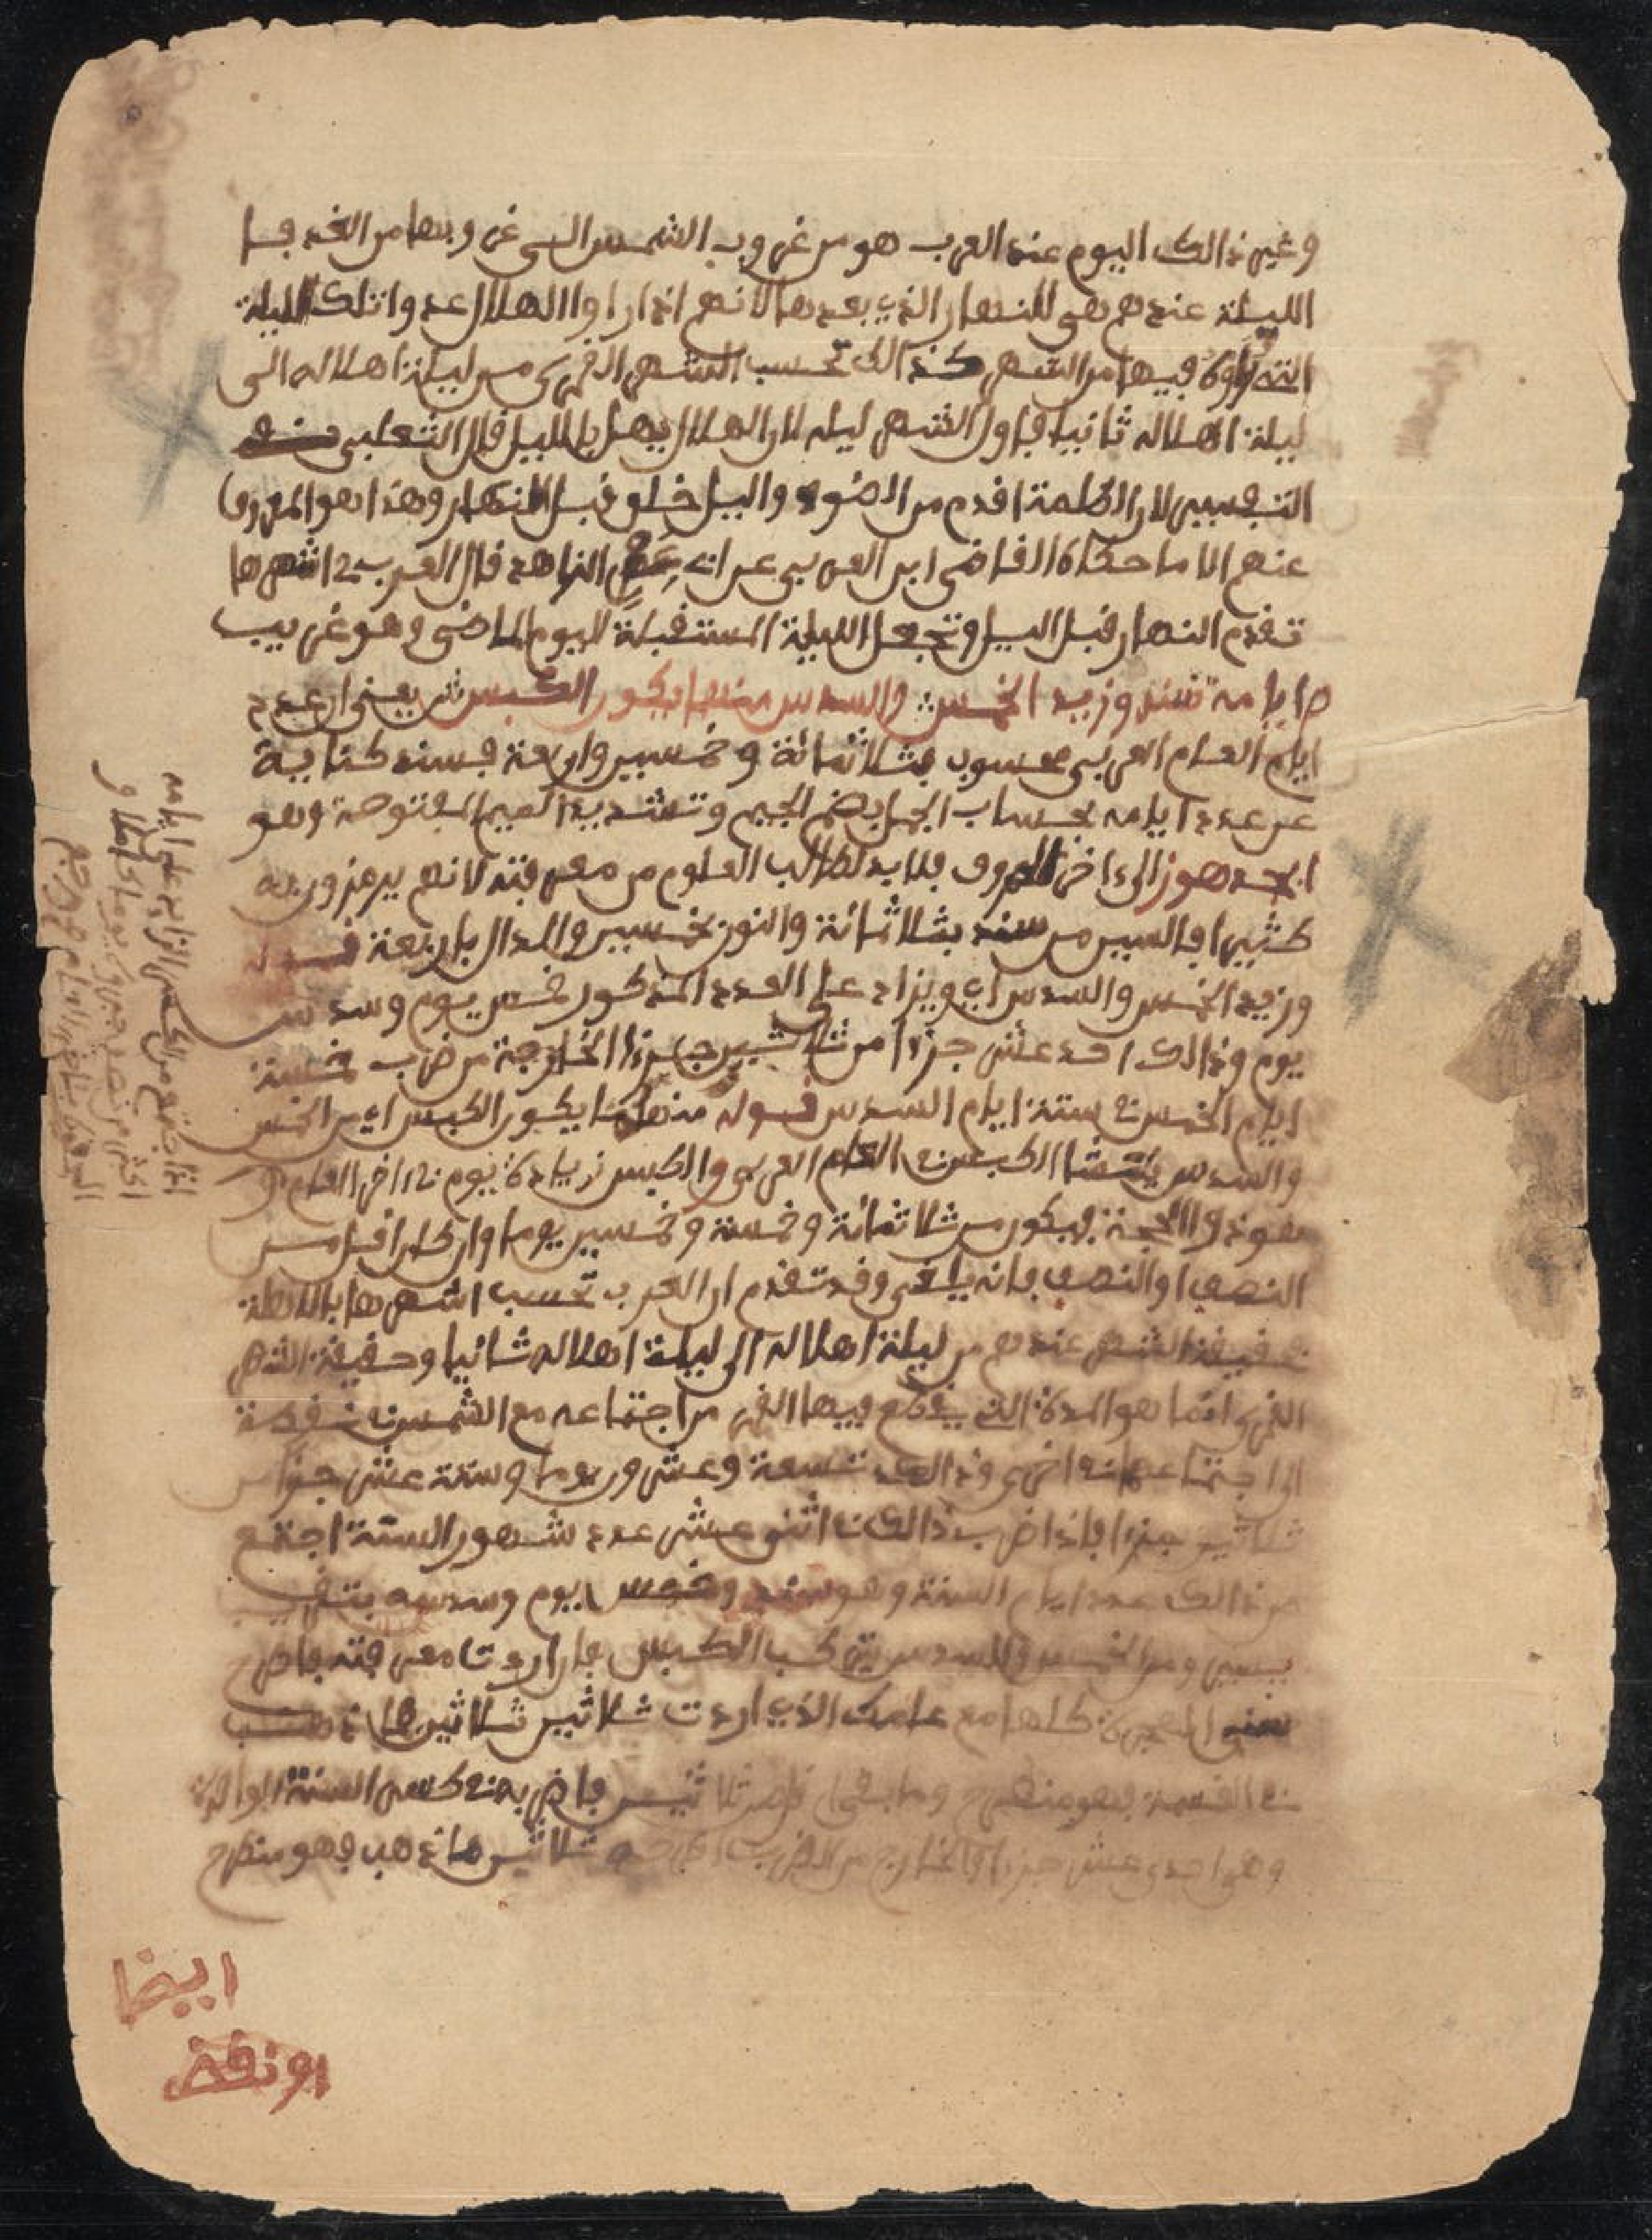 وغير ذالك اليوم عند العرب هو من غروب الشمس الى غروبها من الغد فا
الليلة عندهم هي للنهار الذي بعدها لانهم اذا راوا الهلال عدوا تلك الليلة
التي راوه فيها من الشهر كذالك تحسب الشهر القمري من ليلة اهلاله الى
ليلة اهلاله ثانيا فاول الشهر ليله لان الهلال يهل بالليل قال الثعلبي
التفسير لان الظلمة اقدم من الضوء واليل خلق قبل النهار وهذا هو المعروف
عنهم الا ما حكاه القاضي ابن العربي عن ابن الزاهد قال العرب في اشهرها
تقدم النهار قبل اليل وتجعل الليلة المستقبلة لليوم الماضي وهو غريب
ص ايامه شند وزيد الخمس والسدس منهما يكون الكبس ش يعني ان عدد
ايام العام العربي محسوب بثلاثمائة وخمسين واربعة فسند كناية
عن عدد ايامه بحساب الجمل بضم الجيم وتشديد الميم المفتوحة وهو
ابجد هوز الى ءاخر الحروف فلا بد لطالب العلوم من معرفته لانهم يرمزون به
كثيرا فالسين من سند بثلاثمائة والنون بخمسين والدال باربعة قوله
وزيد الخمس والسدس اي ويزاد على العدد المذكور خمس يوم وسدس
يوم وذالك احد عشر جزءا من ثلاثين جزءا الخارجة من ضرب خمسة
ايام الخمس في ستة ايام السدس قوله منهما يكون الكبس اي من الخمس
والسدس ينشا الكبس في العام العربي والكبس زيادة يوم في ءاخر العام
هو ذو الحجة فيكون من ثلاثمائة وخمسة وخمسين يوما وان كان اقل من
النصف او النصف فانه يلغى وقد تقدم ان العرب تحسب اشهرها بالاهلة
فحقيقة الشهر عندهم من ليلة اهلاله الى ليلة اهلاله ثانيا وحقيقة الشهر
القمري انما هو المدة التي يقطع فيها القمر من اجتماعه مع الشمس في نقطة
الى اجتماعهما في اخرى وذالك تسعة وعشرون يوما وستة عشر جزءا من
ثلاثين جزءا فاذا ضرب ذالك في اثني عشر عدد شهور السنة اجتمع
من ذالك عدد ايام السنة وهو سند وخمس يوم وسدسه بتقريب
يسير ومن الخمس والسدس يتركب الكبس فان اردت معرفته فاطرح
سني الهجرة كلها مع عامك الذي اردت ثلاثين ثلاثين فما ذهب
في القسمة فهو منطرح وما بقي اقل من ثلاثين فاضربه في كسر السنة الواحدة
وهي احدى عشر جزءا والخارج من الضرب اطرحه ثلاثين فما ذهب فهو منطرح
ايضا